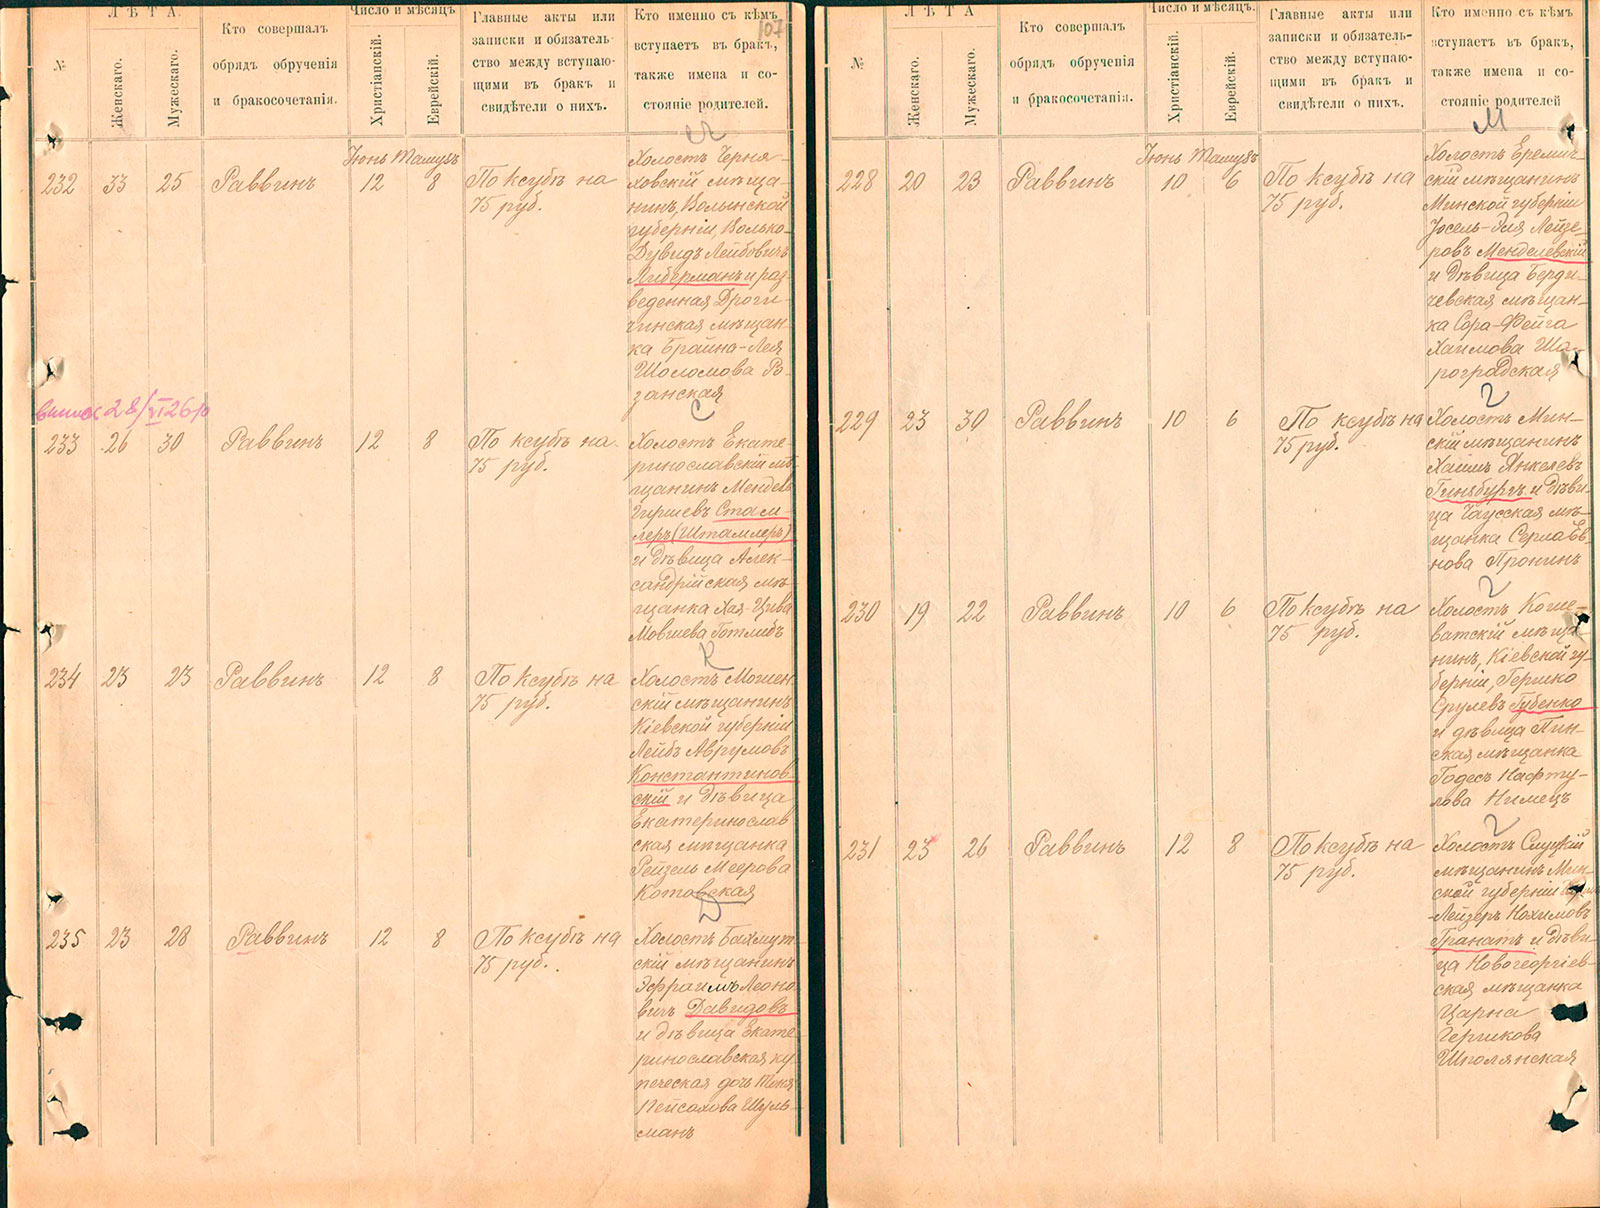 Л Ѣ Т А.
Число и мѣсяцъ.
№
Женскаго.
Мужескаго.
Кто совершалъ
обрядъ обрученія
и бракосочетанія.
Христіанскій.
Еврейскій.
Главные акты или
записки и обязатель-
ство между вступаю-
щими въ бракъ и
свидѣтели о нихъ.
Кто именно съ кѣмъ
вступаетъ въ бракъ,
также имена и со-
стояніе родителей.
107
Л
Іюнь Тамузъ
232 33 25 Раввинъ 12 8
По ксубѣ на
75 руб.
Холостъ Черня-
ховскій мѣща-
нинъ, Волынской
губерніи, Волько-
Дувидъ Лейбовичъ
Либерманъ и раз
веденная Дроги-
чинская мѣщан-
ка Брайна-Лея
Шоломова Ро-
занская
С
233 26 30 Раввинъ 12 8
По ксубѣ на
75 руб.
Холостъ Екате-
ринославскій мѣ-
щанинъ Мендель
Гершевъ Стам-
леръ (Штамлеръ)
и дѣвица Алек-
сандрійская мѣ-
щанка Хая-Цива
Мовшева Готлибъ
К
234 23 23 Раввинъ 12 8
По ксубѣ на
75 руб.
Холостъ Мошен
скій мѣщанинъ
Кіевской губерніи
Лейбъ Аврумовъ
Константинов-
скій и дѣвица
Екатеринослав
ская мѣщанка
Рейзель Меерова
Котовская
Д
235 23 28 Раввинъ 12 8
По ксубѣ на
75 руб.
Холостъ Бахмут-
скій мѣщанинъ
Эфраимъ Леоно-
вичъ Давидовъ
и дѣвица Екате-
ринославская ку-
печеская дочь
Пейсахова Шуль-
манъ
Л Ѣ Т А
Число и мѣсяцъ.
№
Женскаго.
Мужескаго.
Кто совершалъ
обрядъ обрученія
и бракосочетанія.
Христіанскій.
Еврейскій.
Главные акты или
записки и обязатель-
ство между вступаю-
щими въ бракъ и
свидѣтели о нихъ.
Кто именно съ кѣмъ
вступаетъ въ бракъ,
также имена и со-
стояніе родителей
М
Іюнь Тамузъ
228 20 23 Раввинъ 10 6
По ксубѣ на
75 руб.
Холостъ Еремич-
скій мѣщанинъ
Минской губерніи
Іосель-Эля Лейзе-
ровъ Менделевскій
и дѣвица Берди-
чевская мѣщан-
ка Сора-Фейга
Хаимова Ша-
роградская
Г
229 23 30 Раввинъ 10 6
По ксубѣ на
75 руб.
Холостъ Мин-
скій мѣщанинъ
Хаимъ Янкелевъ
Гинзбургъ и дѣви-
ца Чаусская мѣ-
щанка
нова Пронинъ
Г
230 19 22 Раввинъ 10 6
По ксубѣ на
75 руб.
Холостъ Коше-
ватскій мѣща-
нинъ, Кіевской гу-
берніи, Гершко
Срулевъ Губенко
и дѣвица Пин-
ская мѣщанка
Годесъ Нафту-
лова Нимецъ
Г
231 23 26 Раввинъ 12 8
По ксубѣ на
75 руб.
Холостъ Слуцкій
мѣщанинъ Мин-
ской губерніи
-Лейзеръ Нохимовъ
Гранатъ и дѣви-
ца Новогеоргіев-
ская мѣщанка
Царна
Гершкова
Шполянская